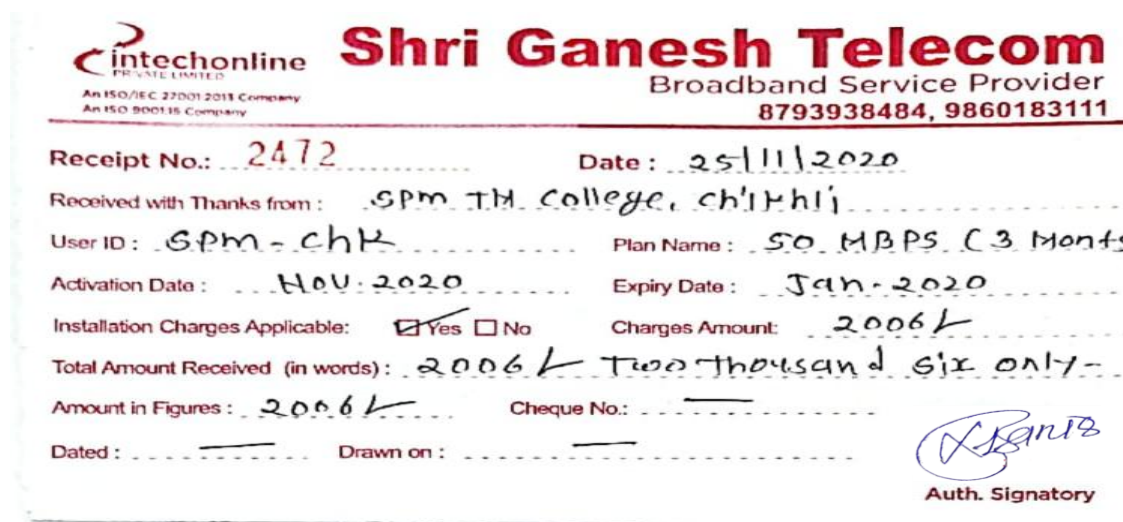 intechonline
PRIVATE LIMITED
An ISO/IEC 27001:2013 Company
An ISO 9001:15 Company
Shri Ganesh Telecom
Broadband Service Provider
8793938484, 9860183111
Receipt No.: 2472 Date : 25/11/2020
Received with Thanks from : SPM TM College, Chikhli
User ID : SPM-Chk Plan Name : 50 MBPS (3 Monts
Activation Date : Nov. 2020 Expiry Date : Jan-2020
Installation Charges Applicable: ☑ Yes ☐ No Charges Amount: 2006/-
Total Amount Received (in words) : 2006/- Two thousand six only-
Amount in Figures : 2006/- Cheque No.: —
Dated : — Drawn on : —
Auth. Signatory